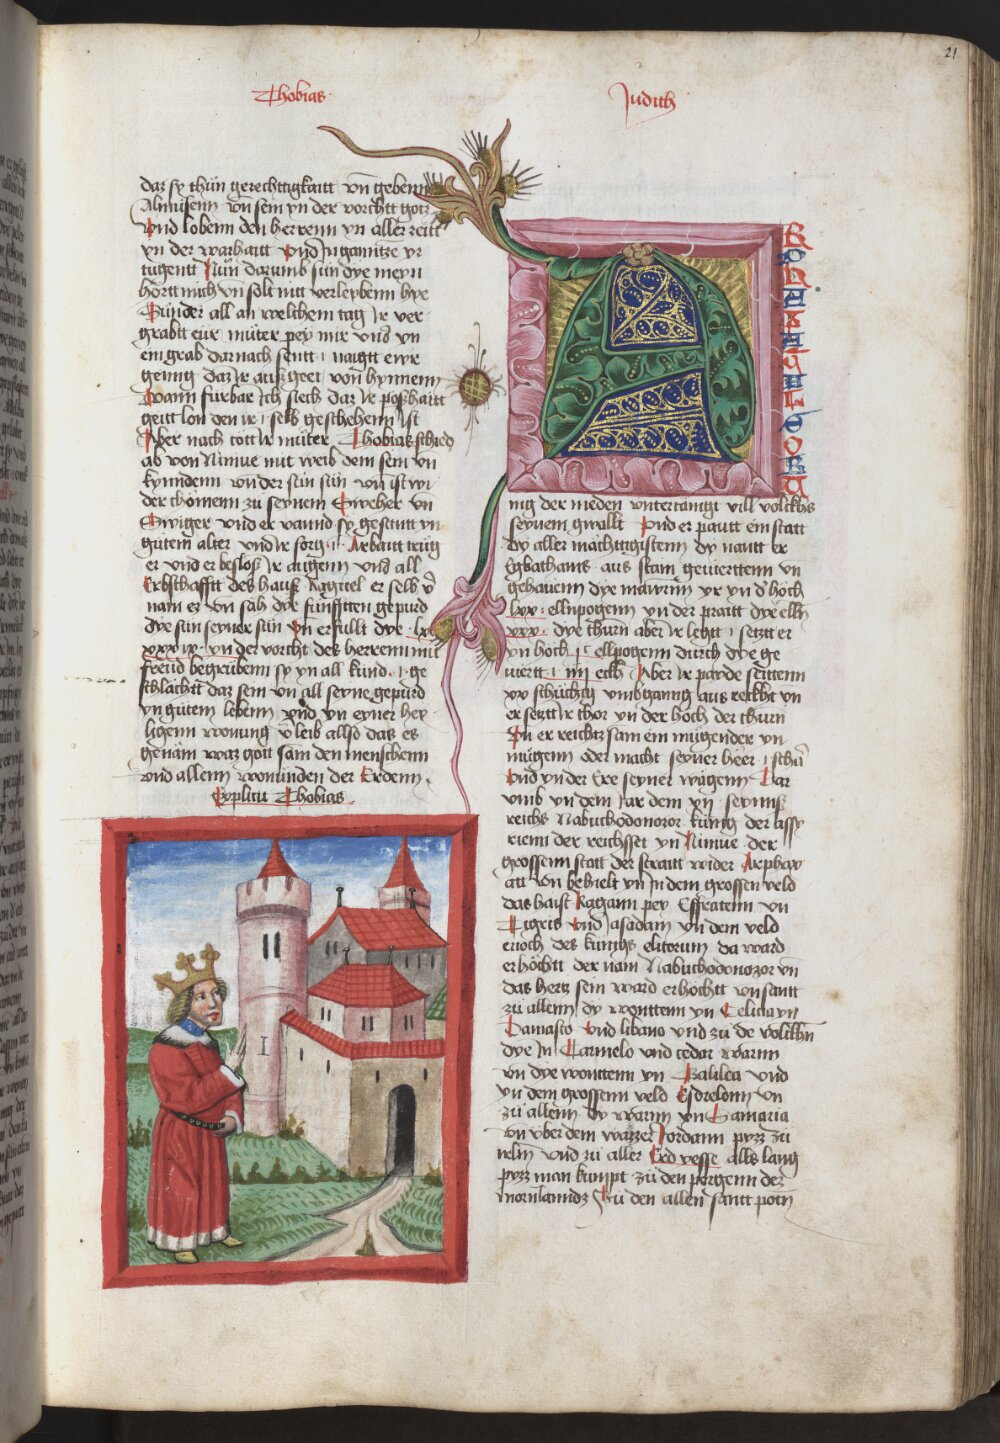 21
Thobias
Judith
daz sy thün gerechtigkaitt vn̄ gebenn
Almüsenn vn̄ sein yn der vorchtt gotz
Vnd lobenn den herrenn yn aller zeitt
yn der warhaitt Vnd In ganntze yr
tugentt Nün darumb sün dye meyn
hörtt mich vn̄ solt nitt verleybenn hye
Sünder all an welchem tag Ir ver
grabtt eur müter pey mir vnd yn
ein grab darnach sentt naigtt ewr
geing daz Ir ausz geet von hynnenn
Wann fürbar Ich siech daz Ir poszhaitt
geitt lon den Ir selb geschehenn Ist
Aber nach tott Ir müter Thobias schied
ab von Niniue mit weib dem sein vn̄
kynndenn vn̄ der sün sün vn̄ ist wi
der chömenn zü seynem Sweher vn̄
Swiger vnd er vannd sy gesuntt yn
gütem alter vnd Ir sorg Arbaitt trüg
er vnd er beslosz Ir augenn vnd all
Erbschafftt des hausz Raguel er selb v̄
nam er vn̄ sah dye fünfften gepurd
dye sün seyner sün Vn̄ erfullt dye lx
xxx ix yn der vorcht des herrenn mit
freüd begrübenn sy yn all kund ge
schlächtt daz sein vn̄ all seyne gepurd
yn gütem lebenn vnd yn eyner hey
ligenn wonung v̄leib allso das es
genäm waz gott sam den menschenn
vnd allenn wonünden der Erdenn
Explicit Thobias
A
RPHAXAT DER
ing der meden vntertänigt vill volckhs
seynem gwallt Vnd er pautt ein statt
dy aller mächttigistenn dy nantt er
Egbathanis aus stain geuierttenn vn̄
gehauenn dye maurnn yr yn d' höch
lxx ellnpogenn yn der praitt dye elln
xxx dye thurn aber Ir legtt setztt er
yn höch c ellpogenn durch dye ge
uiertt iiij eckh Aber Ir payde seittenn
xx schüchig vmbganng aus reckht vn̄
er setztt Ir thor yn der höch der thurn
Vn̄ er reichtz sam ein mügender yn
mügenn oder macht seyner heer
Vnd yn der Ere seyner wägenn Dar
vmb yn dem Jar dem xij seynnsz
reichs Nabuchodonozor künig der assy
rienn der reichsset yn Niniue der
grossenn statt der straitt wider Arphax
att vn̄ behielt yn In dem grossen veld
das haist Ragaun pey Effratenn vn̄
Tigris Vnd Jasadam yn dem veld
erioch des künigs elitorum da ward
erhöchtt der nam Nabuchodonozor vn̄
das hertz sein ward erhöchtt vn̄ santt
zü allenn dy wonttenn yn Celicia yn
Damasco Vnd libano vnd zü de volckhn̄
dye In Carmelo vnd cedar warnn
vn̄ dye wonttenn yn Galilea vnd
yn dem grossenn veld Esdrelonn vn̄
zü allenn dy warnn yn Samaria
vn̄ vber dem wazzer Jordann pyzz zü
vnd zü aller Erd yesse alls lang
pyzz man kumpt zü den pergenn der
mornlanndz Zü den allen santt potn̄